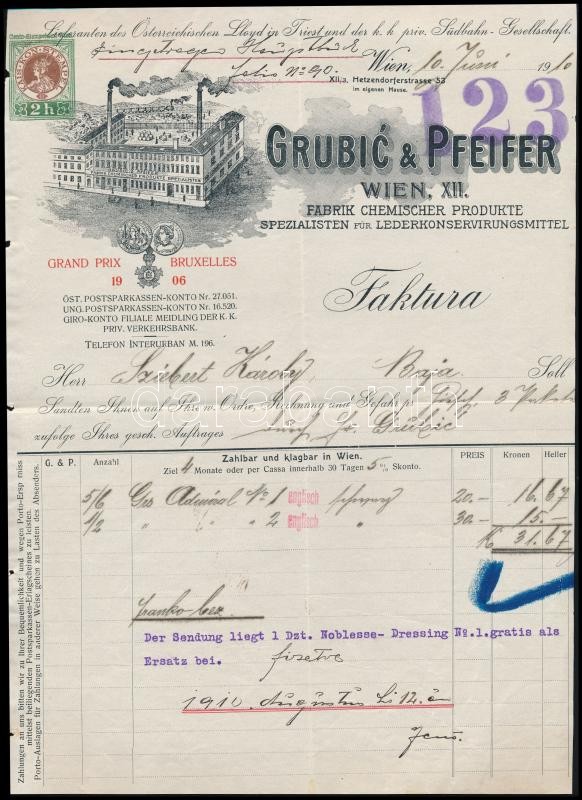 Lieferanten des Österreichischen Lloyd in Triest und der k. k. priv. Südbahn-Gesellschaft.
Eingetragen Hauptbuch
folio No 90.
Wien, 10 Juni 1910
XII./2. Hetzendorferstrasse 53
im eigenen Hause.
2 h
123
GRUBIĆ & PFEIFER
WIEN, XII.
FABRIK CHEMISCHER PRODUKTE
SPEZIALISTEN FÜR LEDERKONSERVIRUNGSMITTEL
GRAND PRIX BRUXELLES
19 06
ÖST. POSTSPARKASSEN-KONTO Nr. 27.051.
UNG. POSTSPARKASSEN-KONTO Nr. 16.520.
GIRO-KONTO FILIALE MEIDLING DER K. K.
PRIV. VERKEHRSBANK.
TELEFON INTERURBAN M. 196.
Faktura
Herr Szábert Károly Baja Soll
Sandten Ihnen auf Ihre w. Ordre, Rechnung und Gefahr p. 3
zufolge Ihres gesch. Auftrages durch Hr. Grubić
darabanth.com
Zahlungen an uns bitten wir zu Ihrer Bequemlichkeit und wegen Porto-Ersparnis
mittelst beiliegenden Postsparkassen-Erlagscheines zu leisten.
Porto-Auslagen für Zahlungen in anderer Weise gehen zu Lasten des Absenders.
G. & P. Anzahl Zahlbar und klagbar in Wien. PREIS Kronen Heller
Ziel 4 Monate oder per Cassa innerhalb 30 Tagen 5 % Skonto.
5/6 Gros Admiral No 1 englisch schwarz 20.- 16.67
1/2 " " " 2 englisch " 30.- 15.-
K 31.67
franko
Der Sendung liegt 1 Dzt. Noblesse- Dressing No.1.gratis als
Ersatz bei. fizetve
1910. Augustus hó 12.én